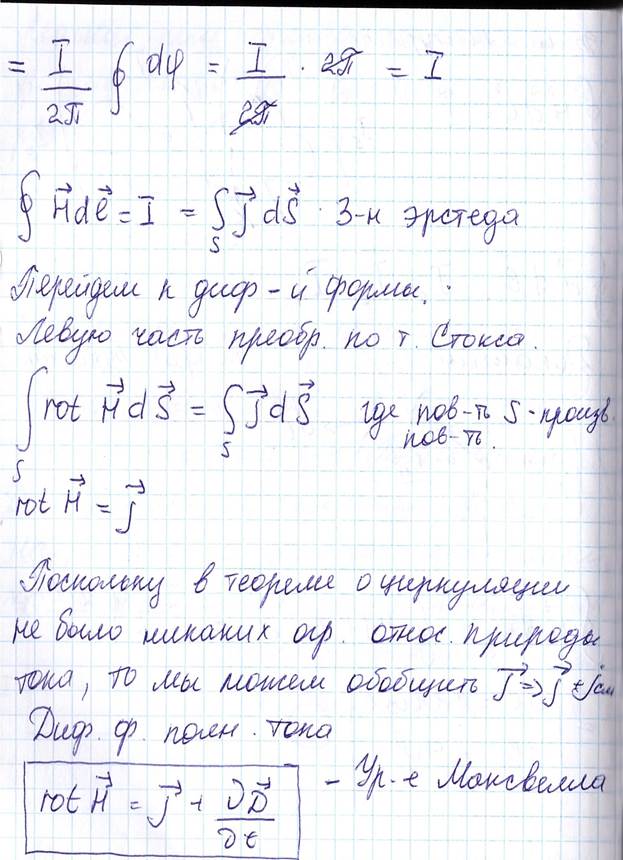 = I/2π ∮ dφ = I/2π · 2π = I
∮ H⃗ dℓ⃗ = I = ∫_S j⃗ dS⃗ · З-н эрстеда
Перейдем к диф-й формы.
Левую часть преобр. по т. Стокса.
∫_S rot H⃗ dS⃗ = ∫_S j⃗ dS⃗ где пов-ть S - произв.
пов-ть.
rot H⃗ = j⃗
Поскольку в теореме о циркуляции
не было никаких огр. относ. природы
тока, то мы можем обобщить j⃗ => j⃗ + j⃗см
Диф. ф. полн. тока
rot H⃗ = j⃗ + ∂D⃗/∂t - Ур-е Максвелла